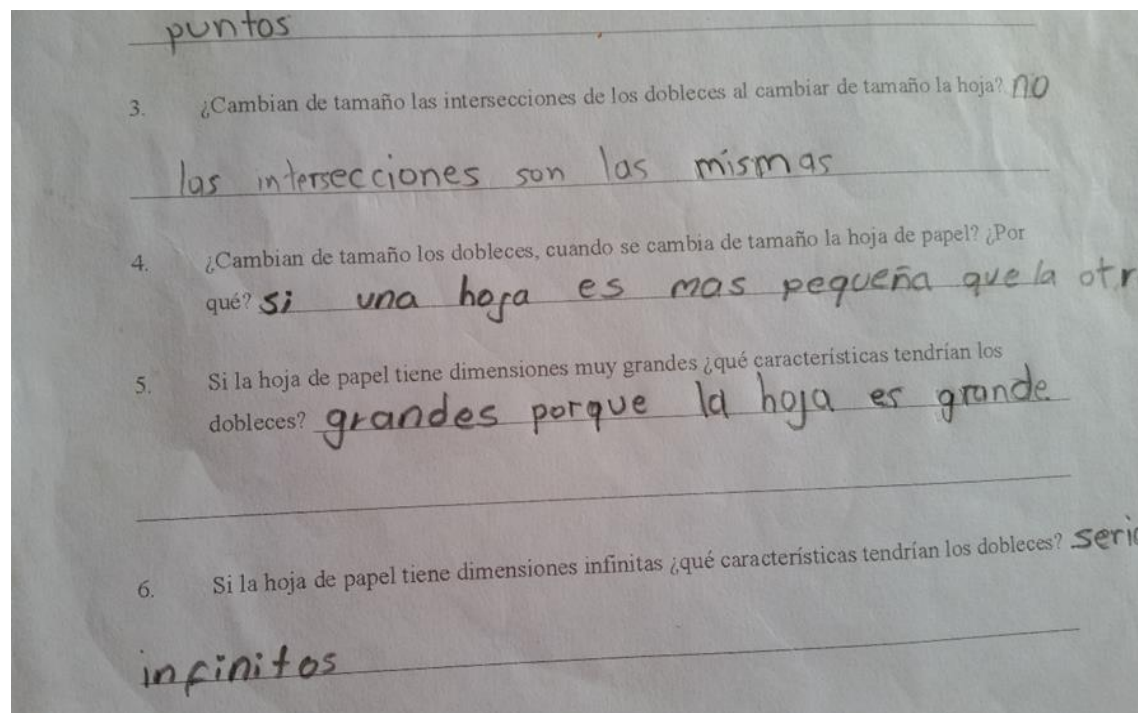 puntos
3. ¿Cambian de tamaño las intersecciones de los dobleces al cambiar de tamaño la hoja? no
las intersecciones son las mismas
4. ¿Cambian de tamaño los dobleces, cuando se cambia de tamaño la hoja de papel? ¿Por
qué? si una hoja es mas pequeña que la otr
5. Si la hoja de papel tiene dimensiones muy grandes ¿qué características tendrían los
dobleces? grandes porque la hoja es grande
6. Si la hoja de papel tiene dimensiones infinitas ¿qué características tendrían los dobleces?
infinitos